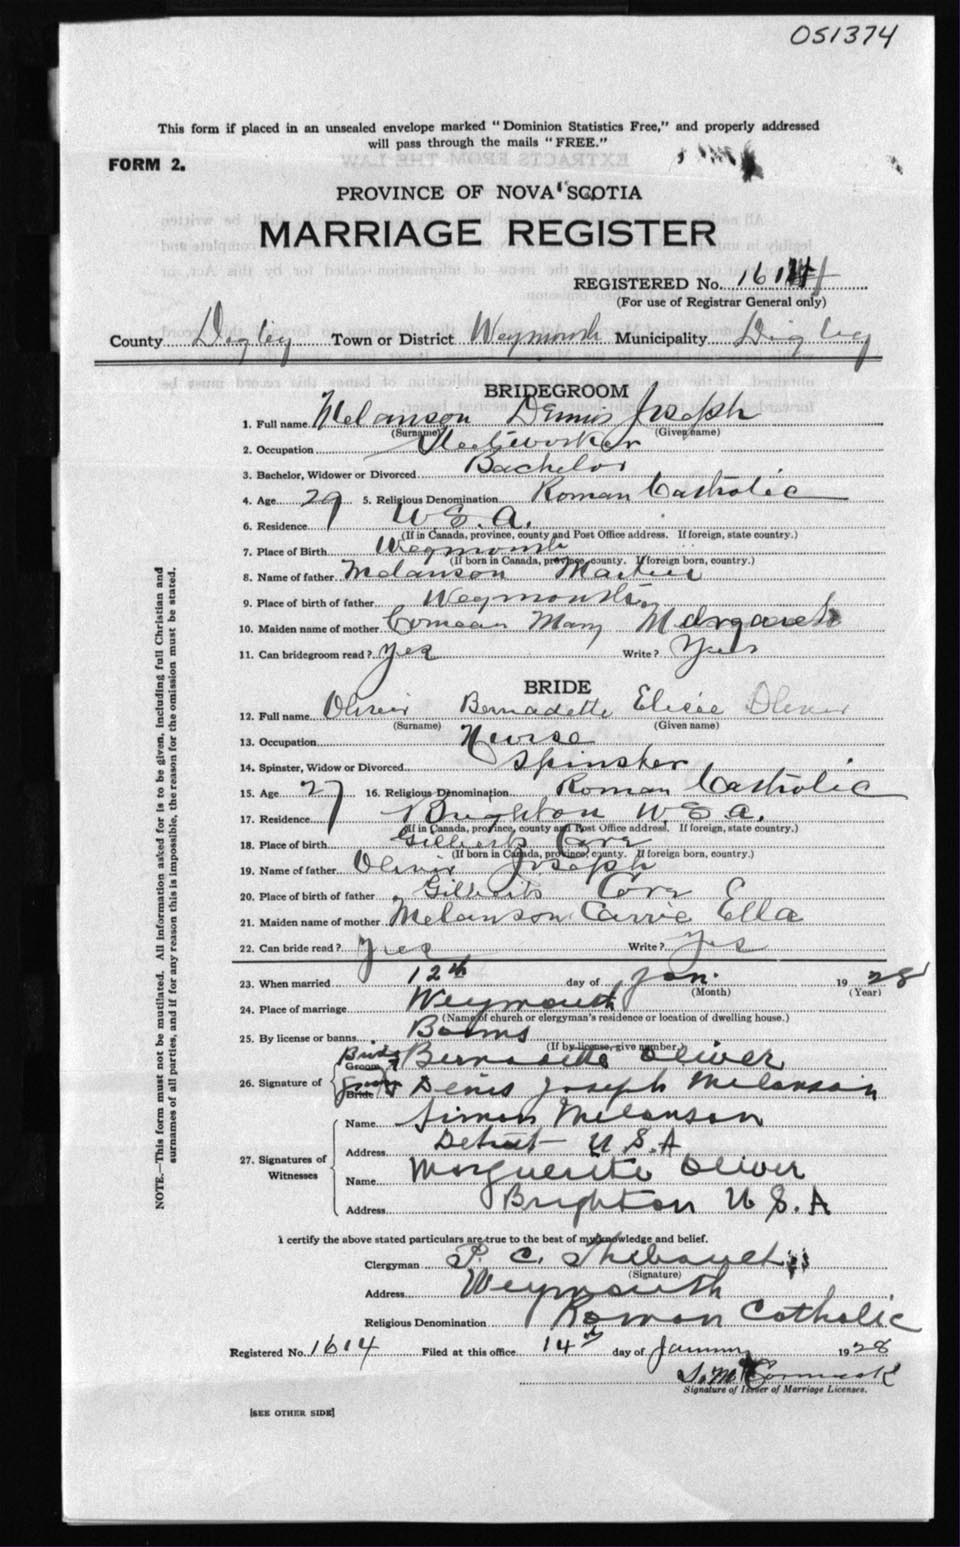 051374
This form if placed in an unsealed envelope marked "Dominion Statistics Free," and properly addressed
will pass through the mails "FREE."
FORM 2.
PROVINCE OF NOVA SCOTIA
MARRIAGE REGISTER
REGISTERED No. 1614
(For use of Registrar General only)
County Digby Town or District Weymouth Municipality Digby
BRIDEGROOM
1. Full name Melanson Dennis Joseph
(Surname) (Given name)
2. Occupation Steelworker
3. Bachelor, Widower or Divorced Bachelor
4. Age 29 5. Religious Denomination Roman Catholic
6. Residence U.S.A.
(If in Canada, province, county and Post Office address. If foreign, state country.)
7. Place of Birth Weymouth
(If born in Canada, province, county. If foreign born, country.)
8. Name of father Melanson
9. Place of birth of father Weymouth
10. Maiden name of mother Comeau Mary Margaret
11. Can bridegroom read? Yes Write? Yes
BRIDE
12. Full name Olivier Bernadette Elisée Oliver
(Surname) (Given name)
13. Occupation Nurse
14. Spinster, Widow or Divorced Spinster
15. Age 27 16. Religious Denomination Roman Catholic
17. Residence Brighton U.S.A.
(If in Canada, province, county and Post Office address. If foreign, state country.)
18. Place of birth Gilberts Cove
(If born in Canada, province, county. If foreign born, country.)
19. Name of father Olivier Joseph
20. Place of birth of father Gilberts Cove
21. Maiden name of mother Melanson Carrie Ella
22. Can bride read? Yes Write? Yes
23. When married 12th day of Jan. 1928
(Month) (Year)
24. Place of marriage Weymouth
(Name of church or clergyman's residence or location of dwelling house.)
25. By license or banns Banns
(If by license, give number.)
26. Signature of
Bride Groom Bernadette Oliver
Groom Bride Denis Joseph Melanson
27. Signatures of Witnesses
Name Simon Melanson
Address Detroit U.S.A
Name Marguerite Oliver
Address Brighton U.S.A
I certify the above stated particulars are true to the best of my knowledge and belief.
Clergyman P. C. Thibault
(Signature)
Address Weymouth
Religious Denomination Roman Catholic
Registered No. 1614 Filed at this office 14th day of January 1928
Signature of Issuer of Marriage Licenses.
[SEE OTHER SIDE]
NOTE.—This form must not be mutilated. All information asked for is to be given, including full Christian and
surnames of all parties, and if for any reason this is impossible, the reason for the omission must be stated.